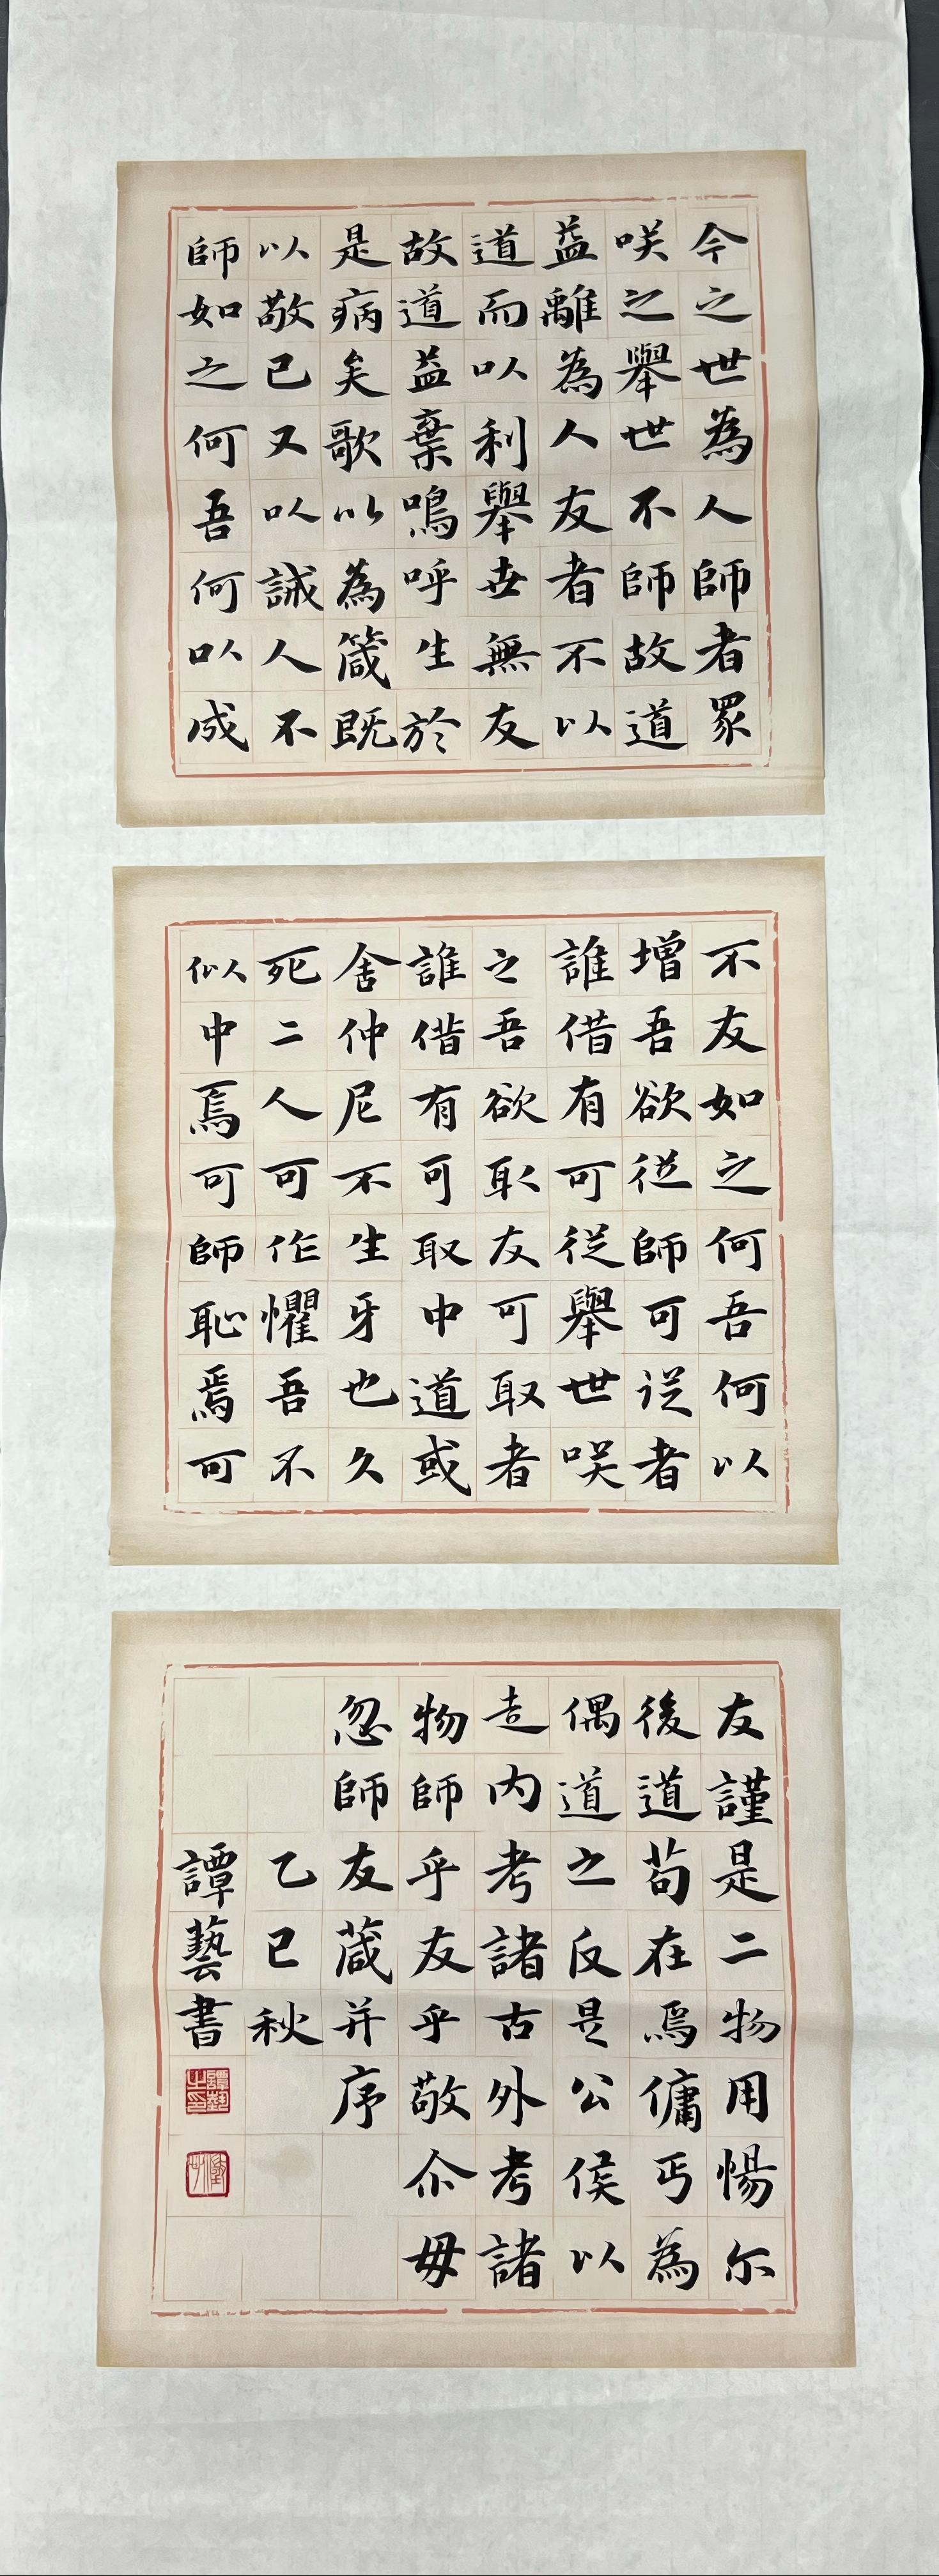 今之世為人師者眾
咲之舉世不師故道
益離為人友者不以
道而以利舉世無友
故道益棄嗚呼生於
是病矣歌以為箴既
以敬已又以誡人不
師如之何吾何以成
不友如之何吾何以
增吾欲從師可從者
誰借有可從舉世咲
之吾欲取友可取者
誰借有可取中道或
舍仲尼不生牙也久
死二人可作懼吾不
似中焉可師恥焉可
友謹是二物用惕尔
後道苟在焉傭丐為
偶道之反是公侯以
走內考諸古外考諸
物師乎友乎敬尒毋
忽師友葴并序
乙巳秋
譚藝書